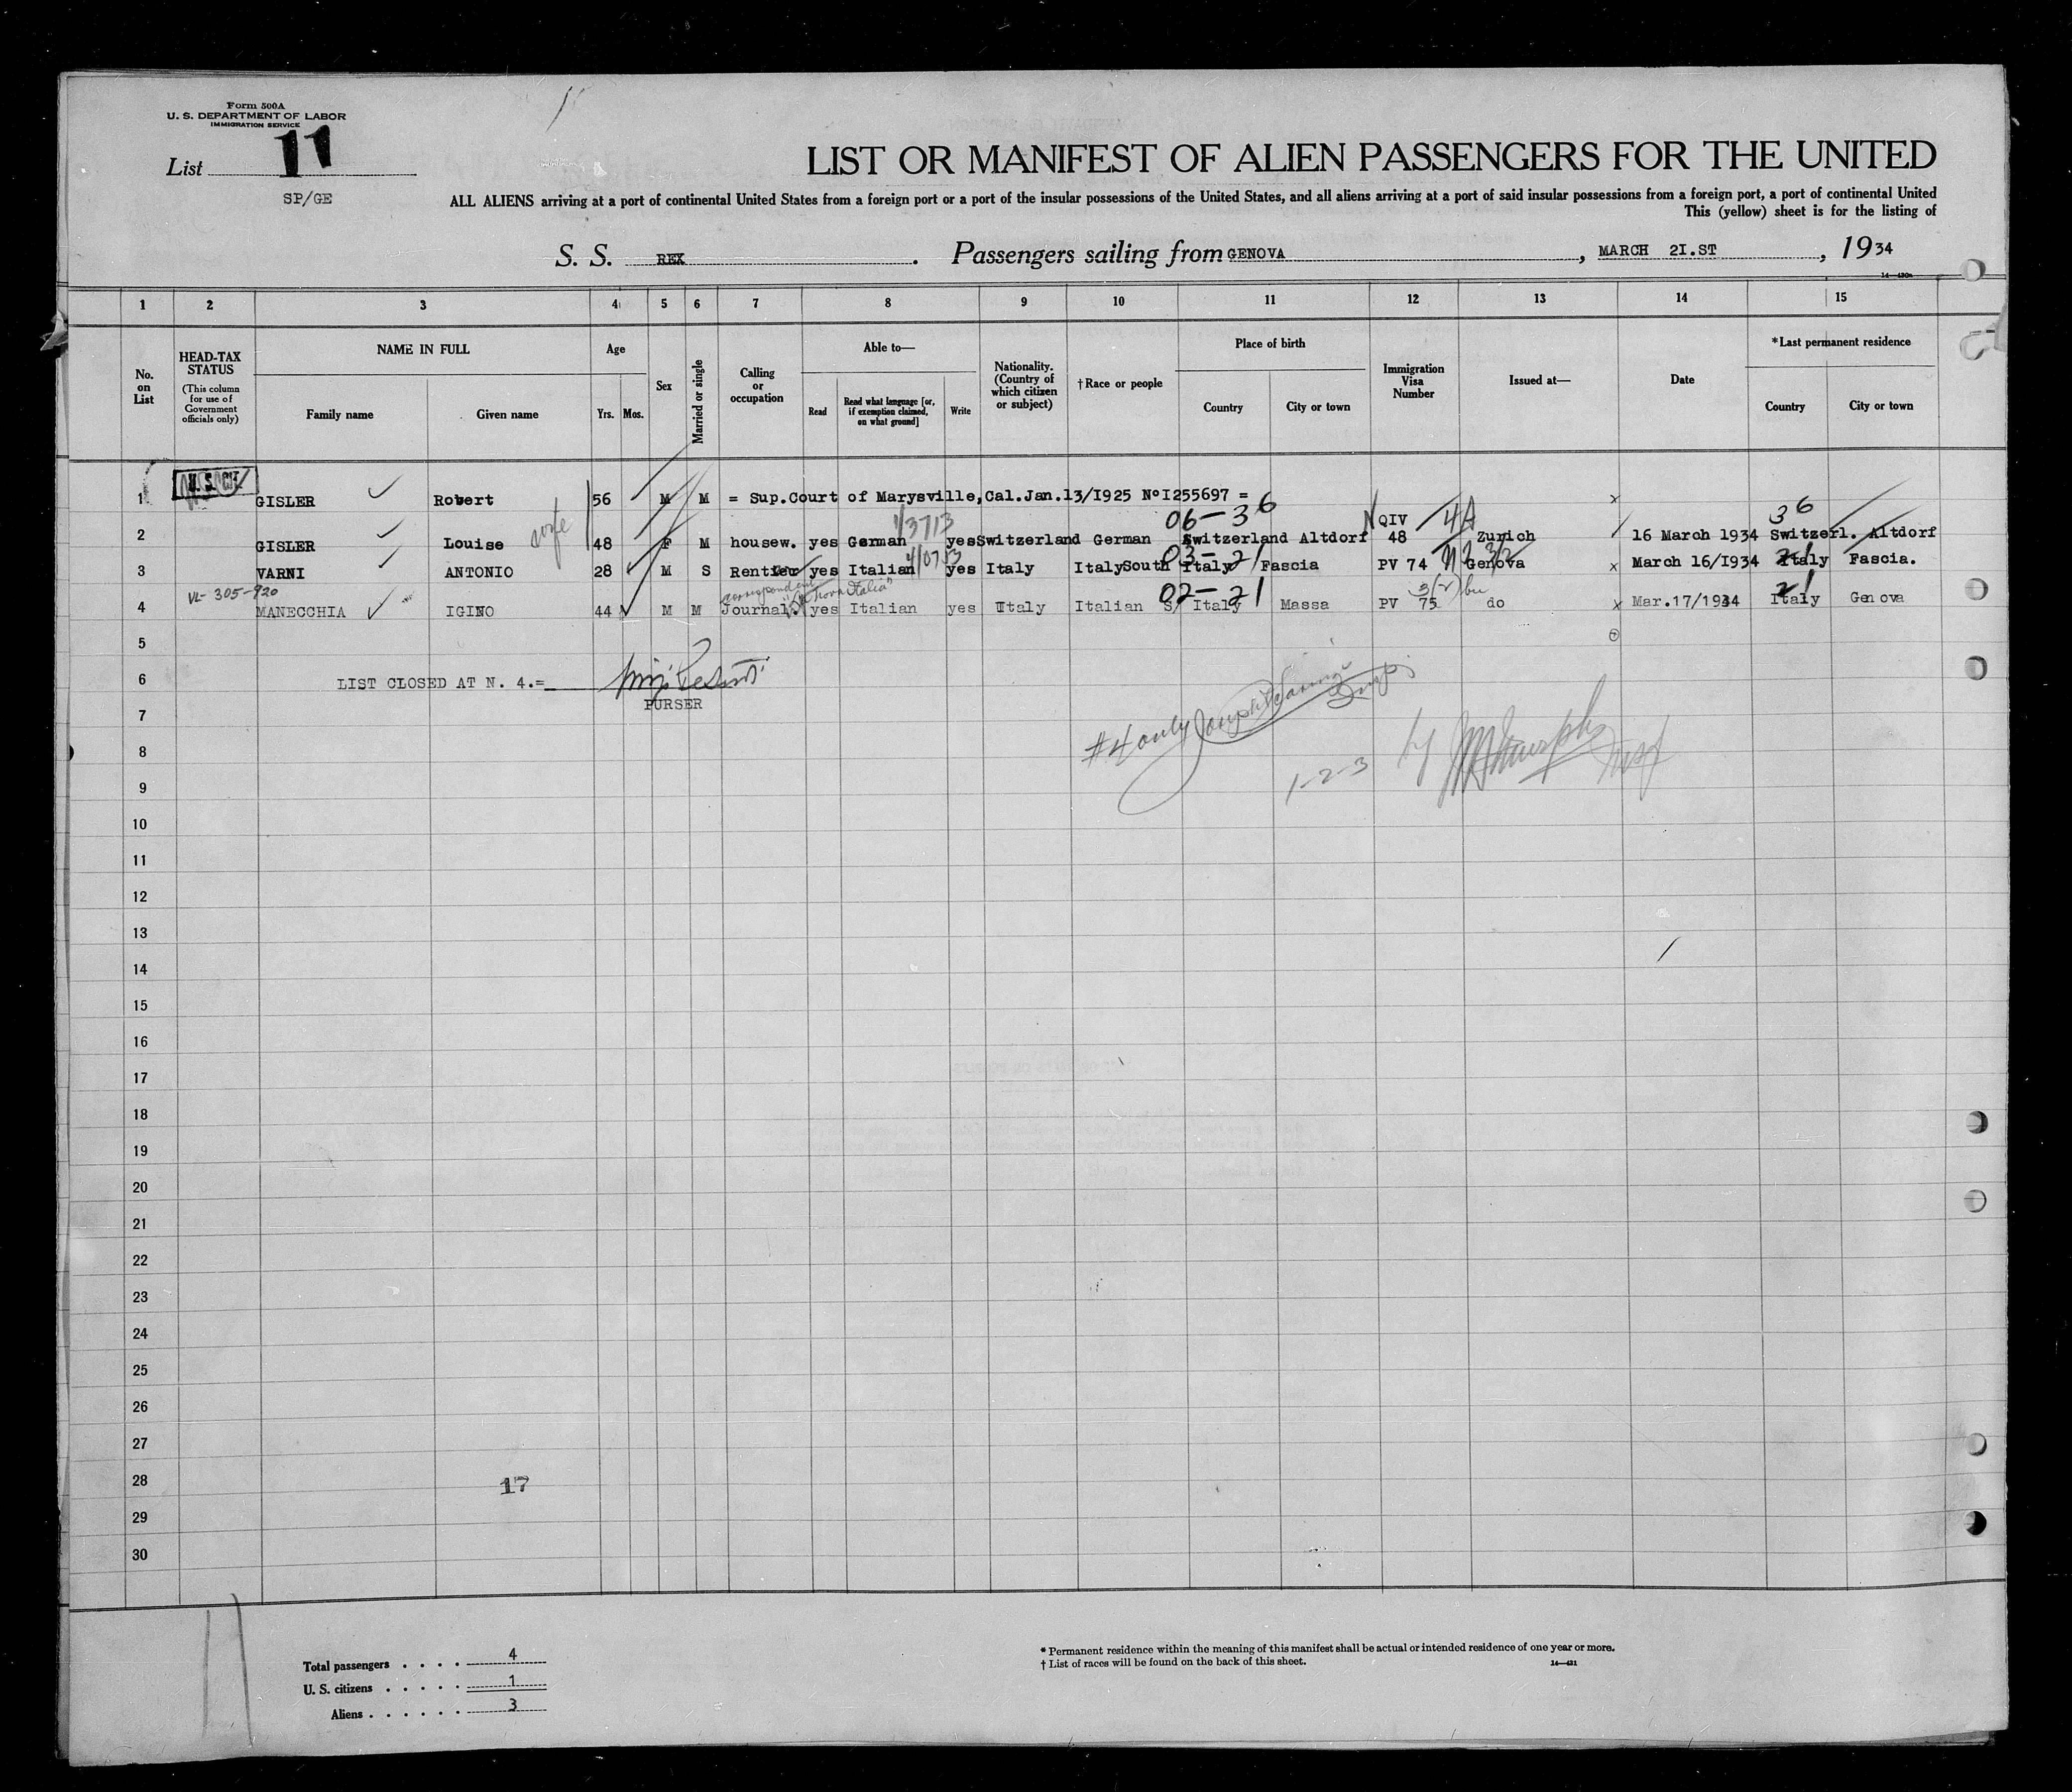 Form 500A
U. S. DEPARTMENT OF LABOR
IMMIGRATION SERVICE
List 11
SP/GE
LIST OR MANIFEST OF ALIEN PASSENGERS FOR THE UNITED
ALL ALIENS arriving at a port of continental United States from a foreign port or a port of the insular possessions of the United States, and all aliens arriving at a port of said insular possessions from a foreign port, a port of continental United
This (yellow) sheet is for the listing of
S. S. REX. Passengers sailing from GENOVA, MARCH 2I.ST, 1934
1 2 3 4 5 6 7 8 9 10 11 12 13 14 15
No. on List
HEAD-TAX STATUS
(This column for use of Government officials only)
NAME IN FULL
Family name
Given name
Age
Yrs. Mos.
Sex
Married or single
Calling or occupation
Able to—
Read
Read what language [or, if exemption claimed, on what ground]
Write
Nationality. (Country of which citizen or subject)
†Race or people
Place of birth
Country
City or town
Immigration Visa Number
Issued at—
Date
*Last permanent residence
Country
City or town
1 U. S. CIT. GISLER Robert 56 M M = Sup.Court of Marysville,Cal.Jan.13/I925 NºI255697 = x
06-36 36
2 GISLER Louise wife 48 F M housew. yes German yes Switzerland German Switzerland Altdorf QIV 48 Zurich 16 March 1934 Switzerl. Altdorf
03-21
3 VARNI ANTONIO 28 M S yes Italian yes Italy Italy South Italy Fascia PV 74 Genova x March 16/I934 Italy Fascia.
VL-305-920 02-21 21
4 MANECCHIA IGINO 44 M M Journal. yes Italian yes Italy Italian S/ Italy Massa PV 75 do x Mar.17/1934 Italy Genova
5
6 LIST CLOSED AT N. 4.=
PURSER
7
#4 only
8
1-2-3 by
9
10
11
12
13
14
15
16
17
18
19
20
21
22
23
24
25
26
27
28 17
29
30
Total passengers . . . . 4
U. S. citizens . . . . . 1
Aliens . . . . . . 3
* Permanent residence within the meaning of this manifest shall be actual or intended residence of one year or more.
† List of races will be found on the back of this sheet.
14—421